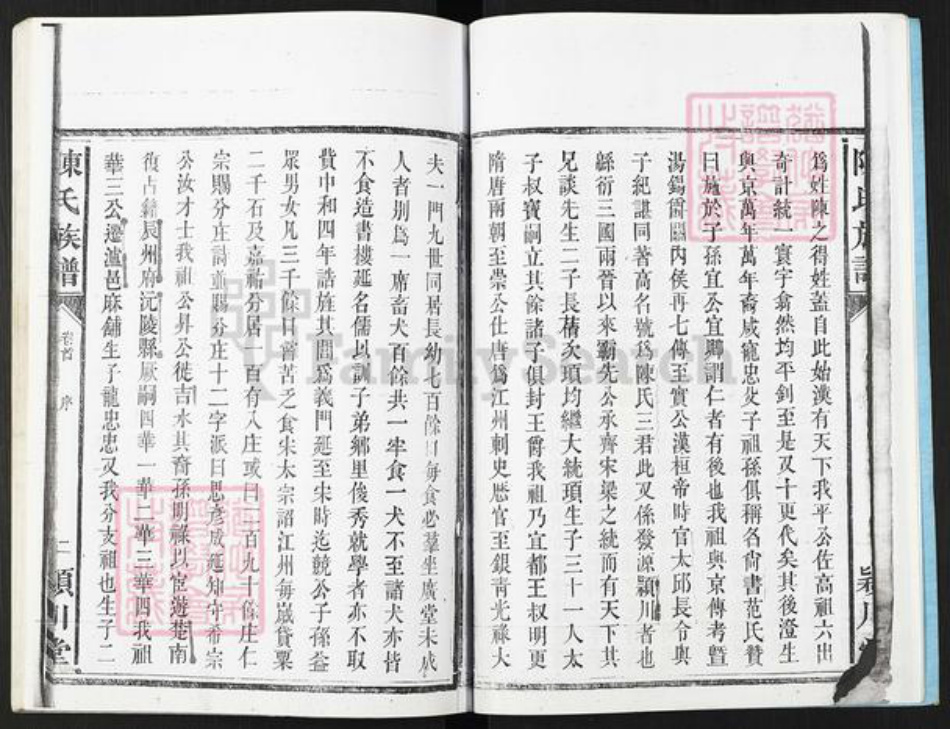 爲姓陳之得姓蓋自此始漢有天下我平公佐高祖六出
奇計統一寰宇翕然均平釗至是又十更代矣其後澄生
與京萬年萬年裔咸寵忠父子祖孫俱稱名尙書范氏贊
曰施於子孫宜公宜卿謂仁者有後也我祖與京傳考暨
湯錫爵關內侯再七傳至實公漢桓帝時官太邱長令與
子紀諶同著高名號爲陳氏三君此又係發源潁川者也
縣衍三國兩晉以來霸先公承齊宋梁之統而有天下其
兄談先生二子長蒨次頊均繼大統頊生子三十一人太
子叔寶嗣立其餘諸子俱封王爵我祖乃宜都王叔明更
隋唐兩朝至崇公仕唐爲江州刺史歷官至銀靑光祿大
夫一門九世同居長幼七百餘口每食必羣坐廣堂未成
人者別爲一席畜犬百餘共一牢食一犬不至諸犬亦皆
不食造書樓延名儒以訓子弟鄉里俊秀就學者亦不取
費中和四年詔旌其閭爲義門延至宋時迄競公子孫益
眾男女凡三千餘口嘗苦乏食宋太宗詔江州每歲貸粟
二千石及嘉祐分居一百有八庄或曰二百九十餘庄仁
宗賜分庄詩並賜分庄十二字派曰思彥咸延知守希宗
公汝才士我祖公昇公徙吉水其裔孫明祿以宦遊楚南
復占籍辰州府沅陵縣厥嗣四華一華二華三華四我祖
華三公遷瀘邑麻舖生子龍忠忠又我分支祖也生子二
陳氏族譜
卷首
序
二
潁川堂